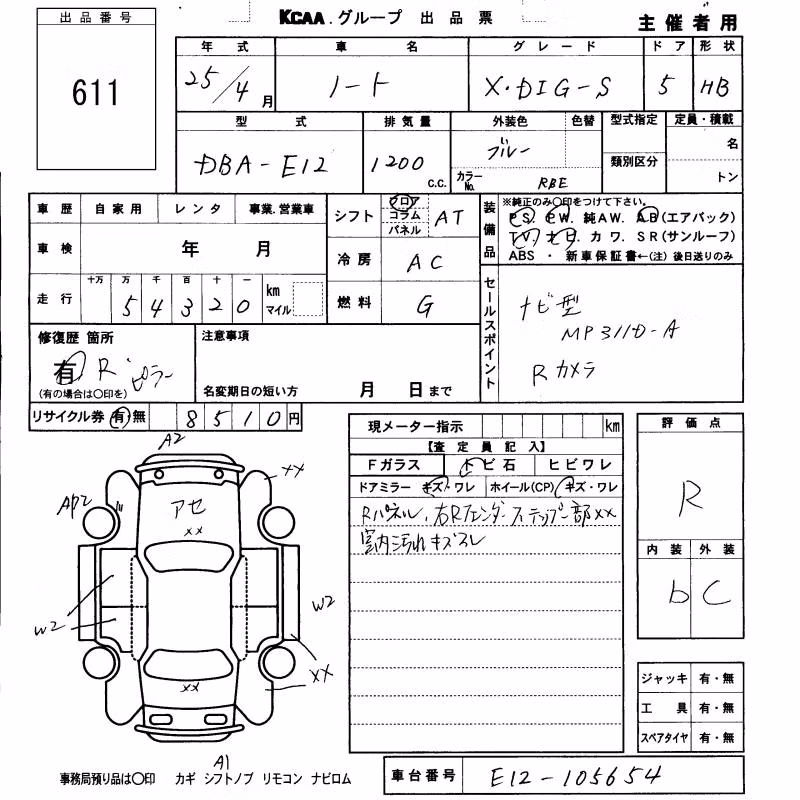 出品番号
611
KCAA.グループ 出品票
主催者用
年式 車名 グレード ドア 形状
25/4月 ノート X・DIG-S 5 HB
型式 排気量 外装色 色替 型式指定 定員・積載
DBA-E12 1200 C.C. ブルー 類別区分 名
カラーNo. RBE トン
車歴 自家用 レンタ 事業.営業車
車検 年 月
走行 十万 万 千 百 十 一
54320 km マイル
シフト フロア コラム パネル AT
冷房 AC
燃料 G
装備品
※純正のみ〇印をつけて下さい。
PS. PW. 純AW. AB(エアバック)
TV. ナビ. カワ. SR(サンルーフ)
ABS ・ 新車保証書←(注)後日送りのみ
セールスポイント
ナビ型
MP311D-A
Rカメラ
修復歴 箇所
有 R ピラー
(有の場合は〇印を)
注意事項
名変期日の短い方 月 日まで
リサイクル券 有・無 8510円
現メーター指示 km
【査定員記入】
Fガラス トビ石 ヒビワレ
ドアミラー キズ・ワレ ホイール(CP) キズ・ワレ
Rパネル、右Rフェンダーステップ部XX
室内汚れキズスレ
評価点
R
内装 外装
b C
ジャッキ 有・無
工具 有・無
スペアタイヤ 有・無
A2
XX
AP2
アセ
XX
W2
W2
XX
XX
A1
事務局預り品は〇印 カギ シフトノブ リモコン ナビロム
車台番号 E12-105654